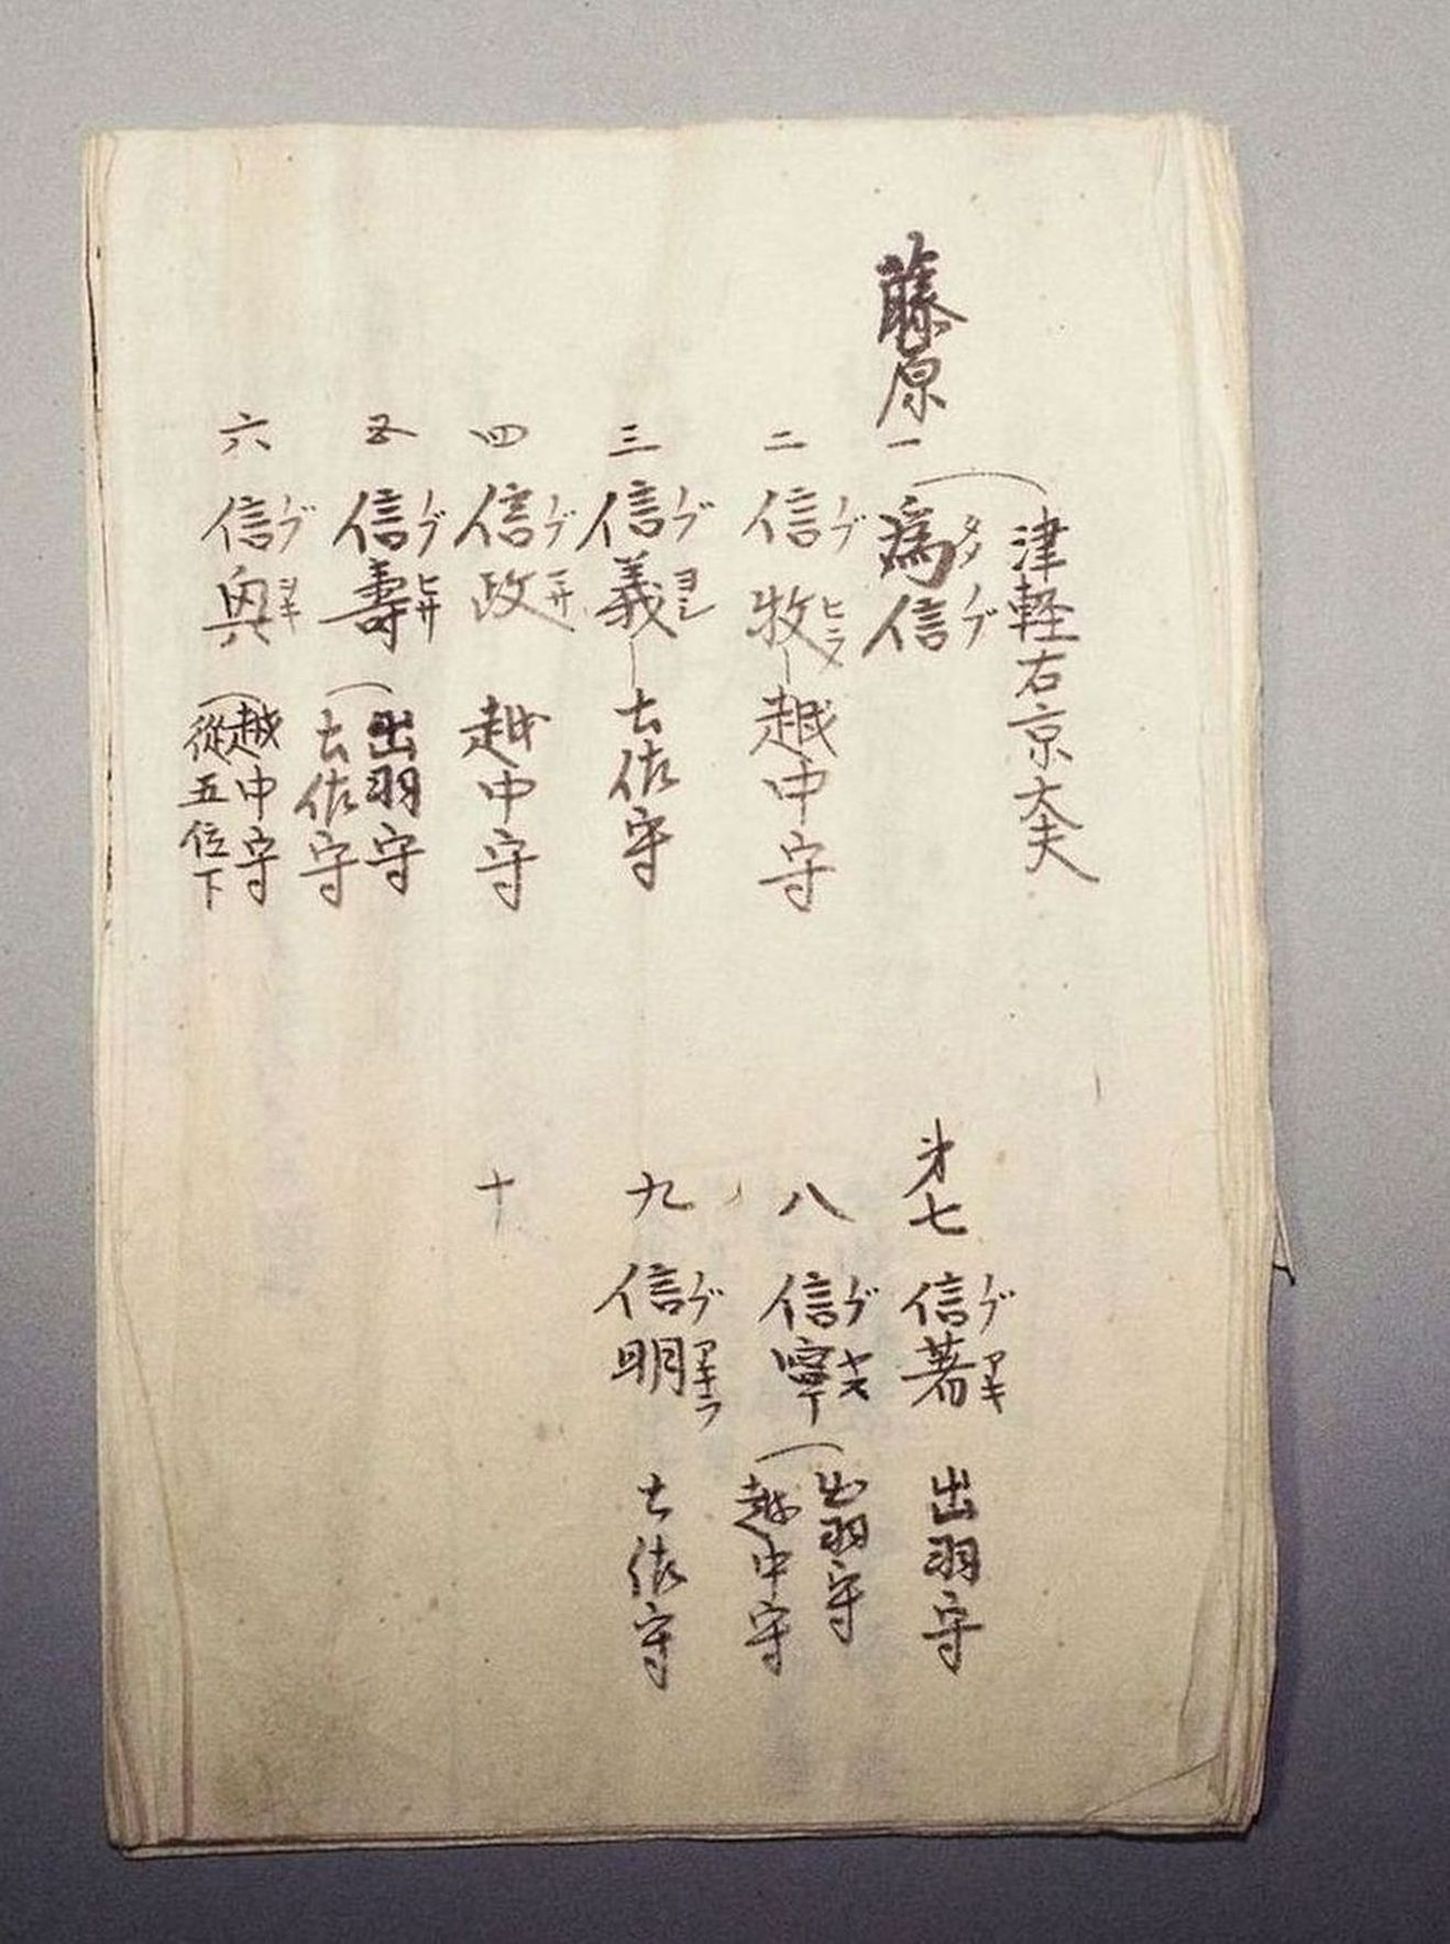 津軽右京大夫
藤原一
爲信 タメノブ
二 信牧 ノブヒラ 越中守
三 信義 ノブヨシ 土佐守
四 信政 ノブマサ 越中守
五 信壽 ノブヒサ 出羽守
土佐守
六 信興 ノブヨキ 越中守
從五位下
才七 信著 ノブアキ 出羽守
八 信寧 ノブヤス 出羽守
越中守
九 信明 ノブアキラ 土佐守
十